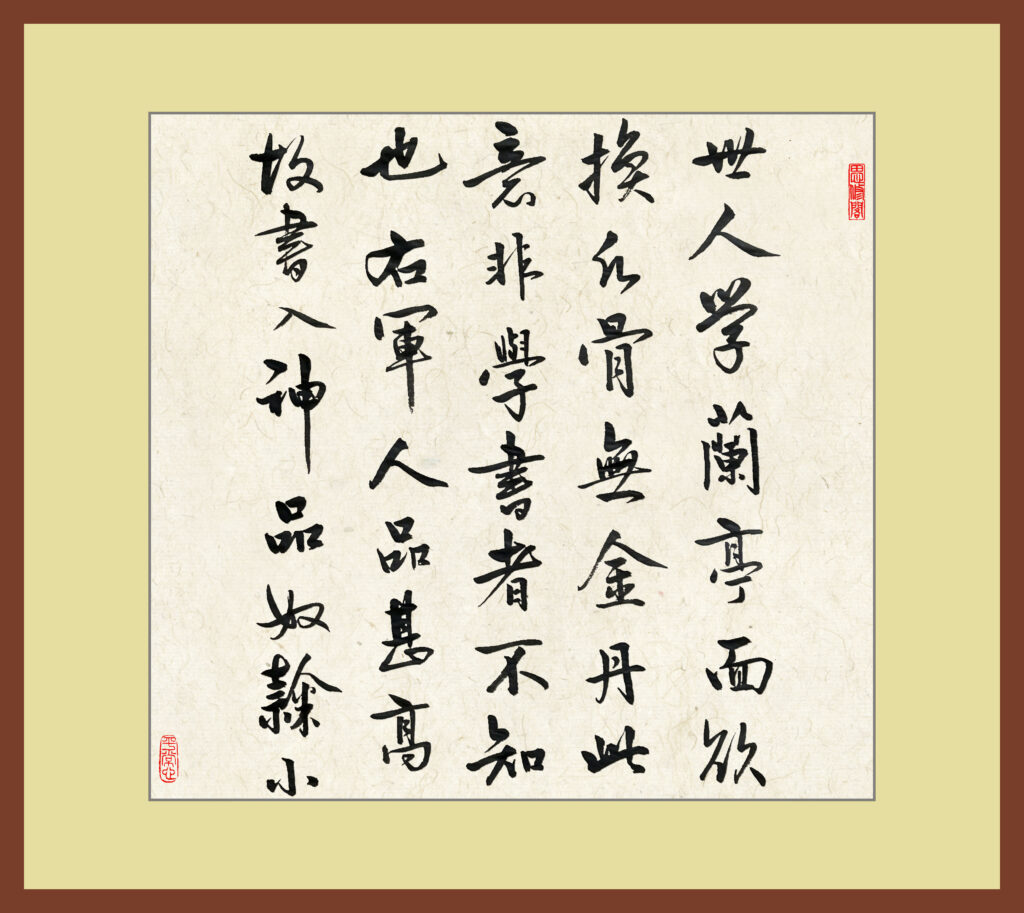 思修閣
世人学蘭亭面欲
換凡骨無金丹此
意非學書者不知
也右軍人品甚高
故書入神品奴隸小
平常心